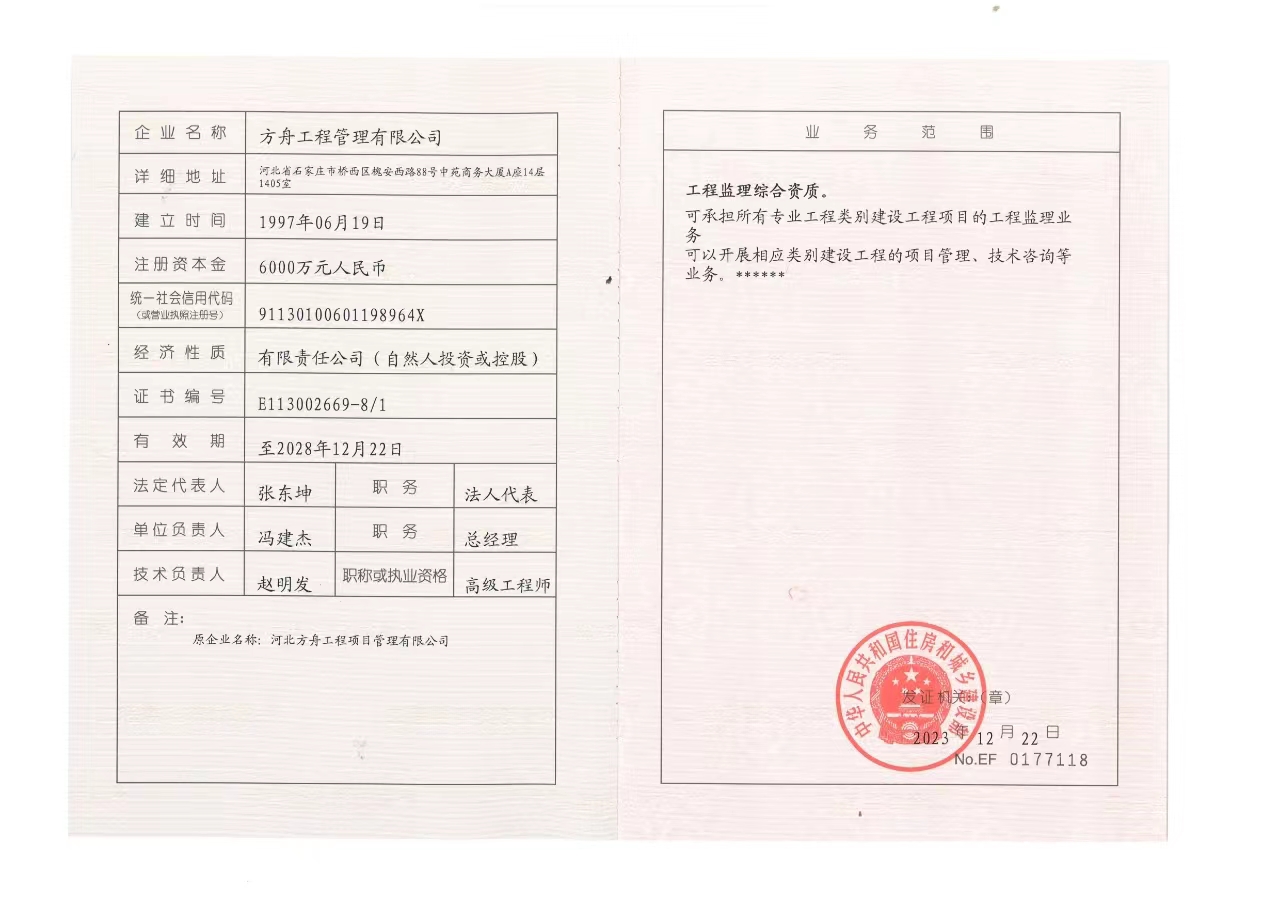 企业名称 方舟工程管理有限公司
详细地址 河北省石家庄市桥西区槐安西路88号中苑商务大厦A座14层
1405室
建立时间 1997年06月19日
注册资本金 6000万元人民币
统一社会信用代码
(或营业执照注册号) 91130100601198964X
经济性质 有限责任公司（自然人投资或控股）
证书编号 E113002669-8/1
有效期 至2028年12月22日
法定代表人 张东坤 职务 法人代表
单位负责人 冯建杰 职务 总经理
技术负责人 赵明发 职称或执业资格 高级工程师
备注:
原企业名称: 河北方舟工程项目管理有限公司
业务范围
工程监理综合资质。
可承担所有专业工程类别建设工程项目的工程监理业
务
可以开展相应类别建设工程的项目管理、技术咨询等
业务。******
中华人民共和国住房和城乡建设部
发证机关:（章）
2023年12月22日
No.EF 0177118